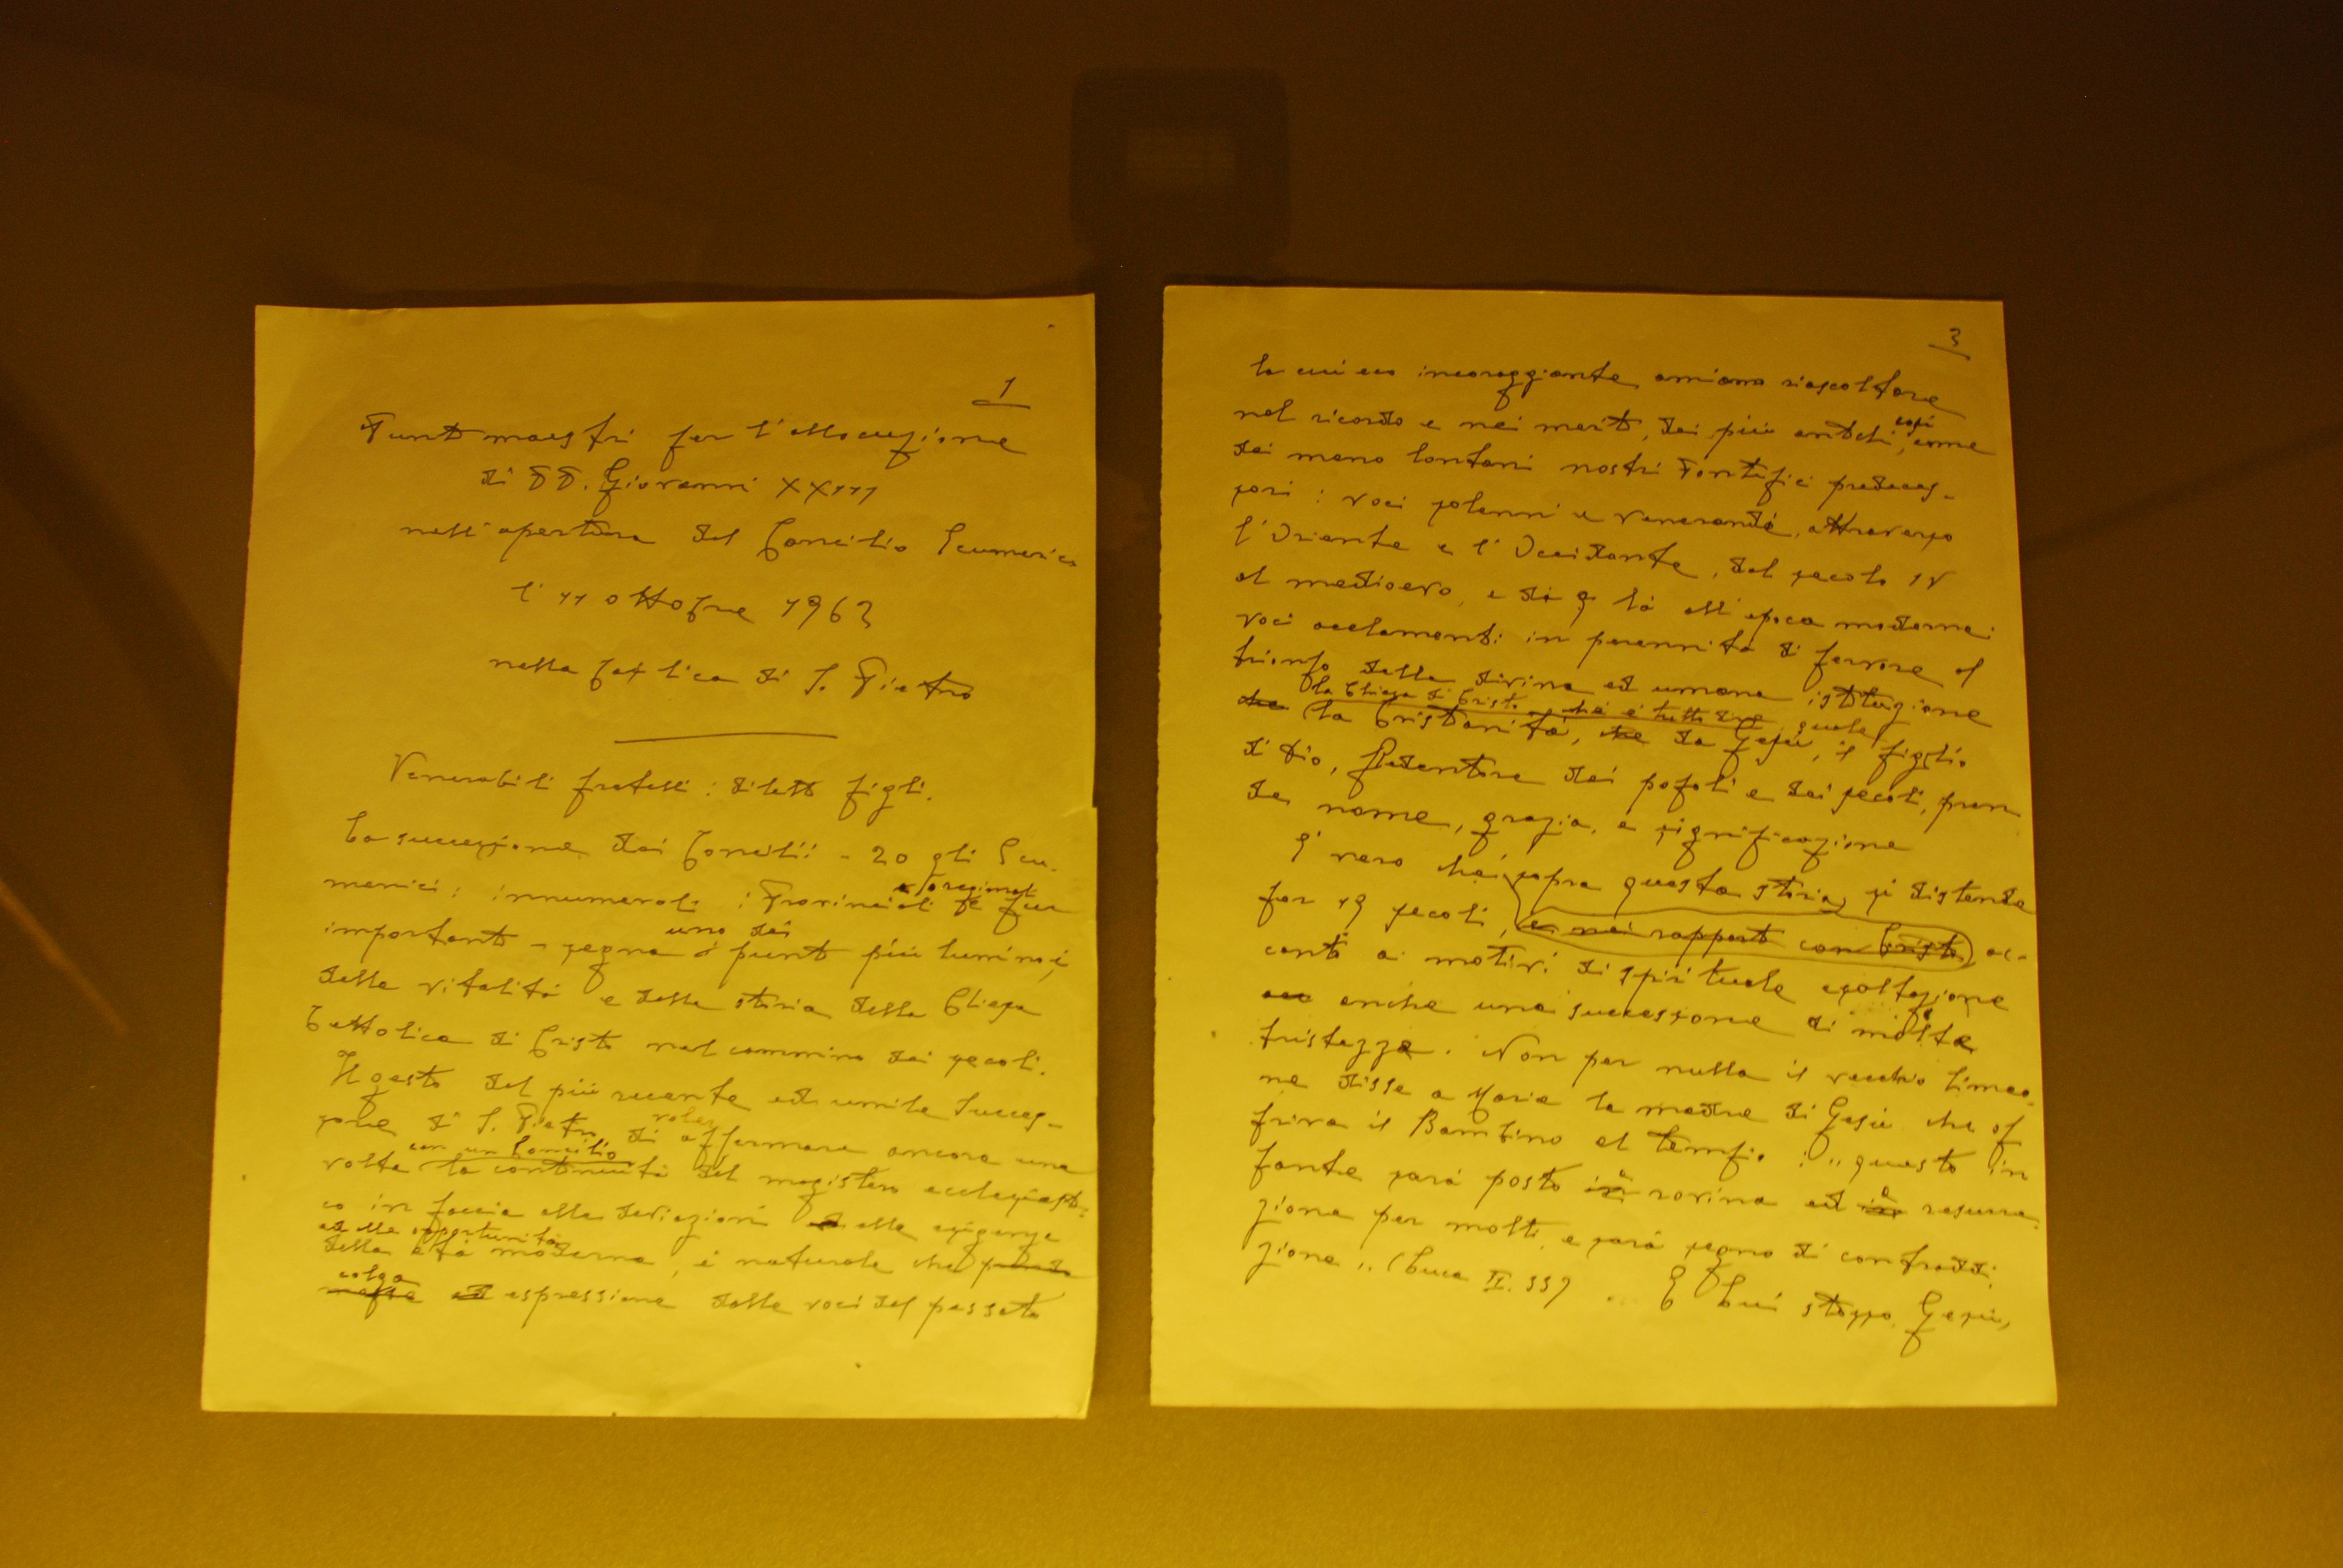 1
Punti maestri per l'allocuzione
di PP. Giovanni XXIII
nell'apertura del Concilio Ecumenico
l'11 ottobre 1962
nella basilica di S. Pietro
Venerabili fratelli: diletti figli.
La successione dei Concilii - 20 gli Ecu-
e regionali
menici: innumerevoli i Provinciali pur
uno dei
importanti - segna i punti più luminosi
della vitalità e della storia della Chiesa
Cattolica di Cristo nel cammino dei secoli.
Il gesto del più recente ed umile Succes-
voler
sore di S. Pietro di affermare ancora una
con un Concilio
volta la continuità del magistero ecclesiasti-
co in faccia alle deviazioni alle esigenze
ed alle opportunità
della età moderna, è naturale che prenda
colga
mossa ed espressione dalle voci del passato
3
la cui eco incoraggiante amiamo riascoltare
così
nel ricordo e nei meriti, dei più antichi, come
dei meno lontani nostri Pontefici predeces-
sori: voci solenni e venerande, attraverso
l'Oriente e l'Occidente, dal secolo IV
al medioevo, e di là all'epoca moderna:
voci acclamanti in perennità di fervore al
trionfo della divina ed umana istituzione
la Chiesa di Cristo che è tutt'una quale
che la Cristianità, che da Gesù, il figlio
di Dio, Redentore dei popoli e dei secoli, pren
de nome, grazia, e significazione
E' vero che sopra questa storia, si distende
per 19 secoli, e nei rapporti con Cristo, ac-
canto a motivi di spirituale esaltazione
anche una successione di molta
tristezza. Non per nulla il vecchio Simeo-
ne disse a Maria la madre di Gesù che of
friva il Bambino al tempio: "questo in
a a
fante sarà posto in rovina ed in resurre-
zione per molti, e sarà segno di contraddi-
zione" (Luca II. 35) E Lui stesso, Gesù,